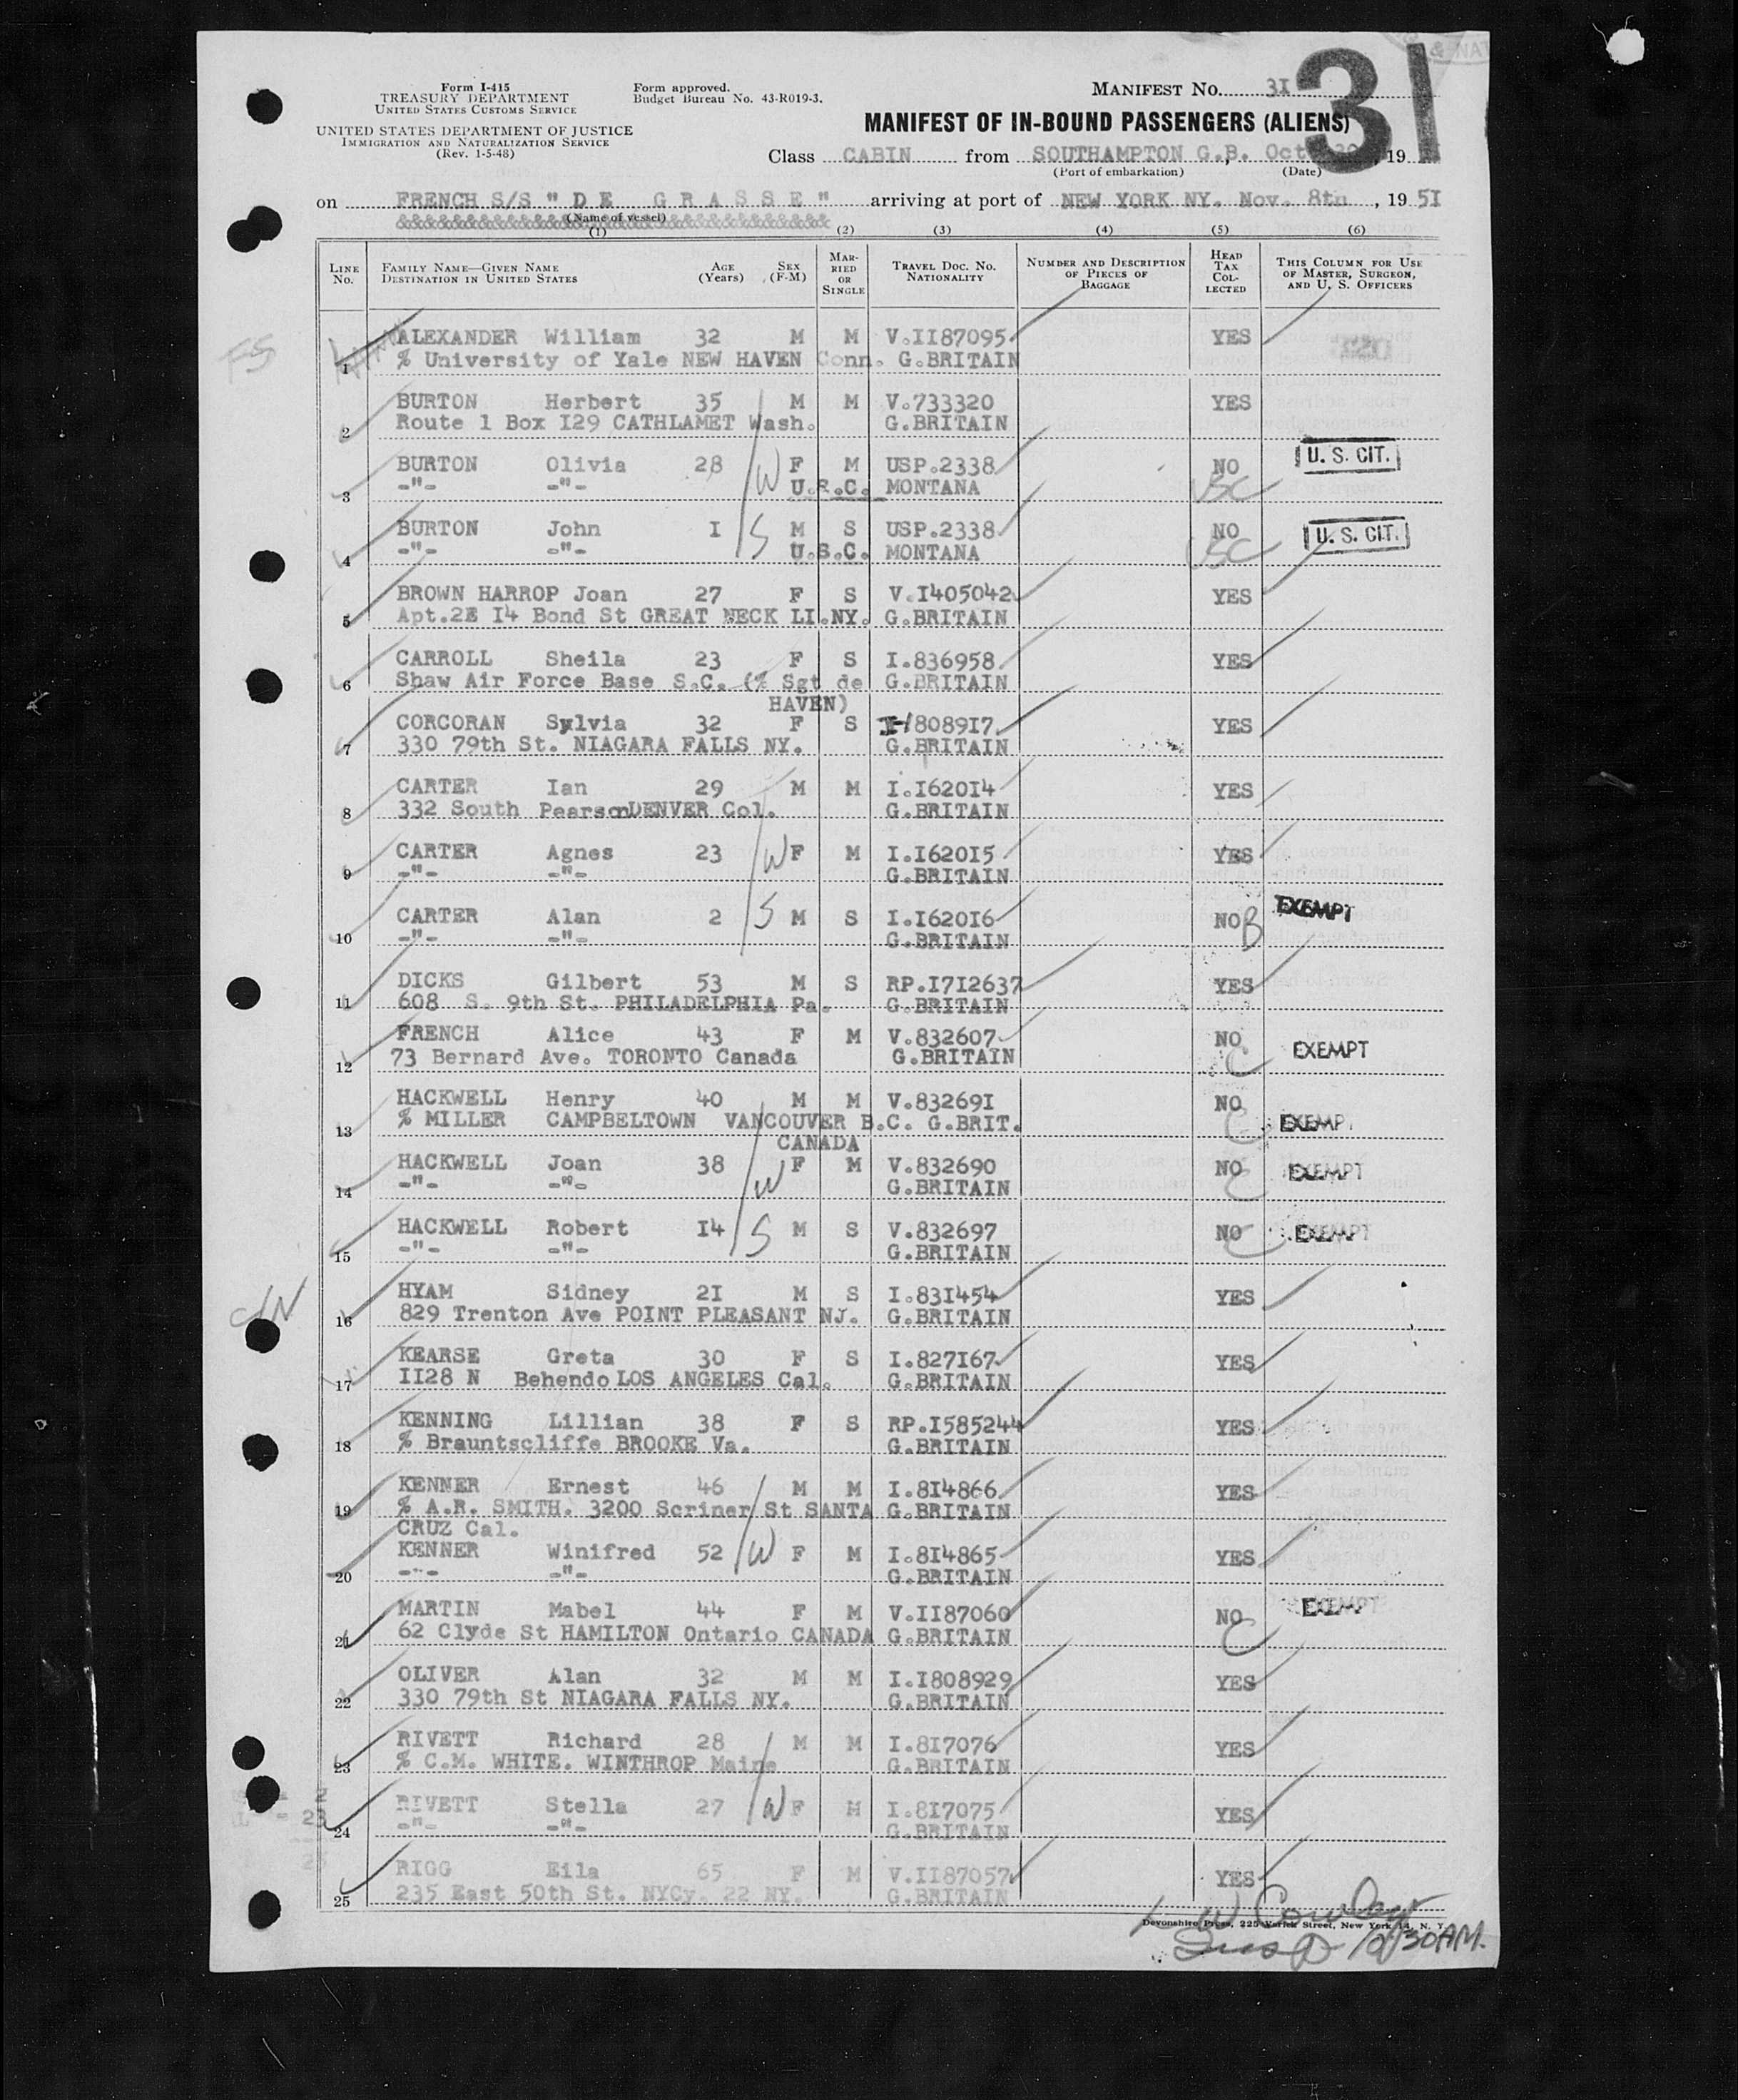 Form I-415
TREASURY DEPARTMENT
UNITED STATES CUSTOMS SERVICE
UNITED STATES DEPARTMENT OF JUSTICE
IMMIGRATION AND NATURALIZATION SERVICE
(Rev. 1-5-48)
Form approved.
Budget Bureau No. 43-R019-3.
MANIFEST No. 3I
31
MANIFEST OF IN-BOUND PASSENGERS (ALIENS)
Class CABIN from SOUTHAMPTON G.B. Oct , 19
(Port of embarkation) (Date)
on FRENCH S/S " D E G R A S S E " arriving at port of NEW YORK NY. Nov. 8th , 19 5I
(Name of vessel)
(1) (2) (3) (4) (5) (6)
LINE No. FAMILY NAME—GIVEN NAME DESTINATION IN UNITED STATES AGE (Years) SEX (F-M) MARRIED OR SINGLE TRAVEL DOC. No. NATIONALITY NUMBER AND DESCRIPTION OF PIECES OF BAGGAGE HEAD TAX COLLECTED THIS COLUMN FOR USE OF MASTER, SURGEON, AND U. S. OFFICERS
FS
ALEXANDER William 32 M M V.II87095 YES
1 % University of Yale NEW HAVEN Conn. G.BRITAIN
BURTON Herbert 35 M M V.733320 YES
2 Route 1 Box I29 CATHLAMET Wash. G.BRITAIN
BURTON Olivia 28 W F M USP.2338 NO U. S. CIT.
3 -"- -"- U.S.C. MONTANA USC
BURTON John I S M S USP.2338 NO U. S. CIT.
4 -"- -"- U.S.C. MONTANA USC
BROWN HARROP Joan 27 F S V.I405042 YES
5 Apt.2E I4 Bond St GREAT NECK LI.NY. G.BRITAIN
CARROLL Sheila 23 F S I.836958 YES
6 Shaw Air Force Base S.C. (% Sgt de G.BRITAIN
HAVEN)
CORCORAN Sylvia 32 F S 808917 YES
7 330 79th St. NIAGARA FALLS NY. G.BRITAIN
CARTER Ian 29 M M I.I620I4 YES
8 332 South Pearson DENVER Col. G.BRITAIN
CARTER Agnes 23 W F M I.I620I5 YES
9 -"- -"- G.BRITAIN
CARTER Alan 2 S M S I.I620I6 NO B EXEMPT
10 -"- -"- G.BRITAIN
DICKS Gilbert 53 M S RP.I7I2637 YES
11 608 S. 9th St. PHILADELPHIA Pa. G.BRITAIN
FRENCH Alice 43 F M V.832607 NO
12 73 Bernard Ave. TORONTO Canada G.BRITAIN C EXEMPT
HACKWELL Henry 40 M M V.83269I NO
13 % MILLER CAMPBELTOWN VANCOUVER B.C. G.BRIT. C EXEMPT
CANADA
HACKWELL Joan 38 W F M V.832690 NO C EXEMPT
14 -"- -"- G.BRITAIN
HACKWELL Robert I4 S M S V.832697 NO C EXEMPT
15 -"- -"- G.BRITAIN
HYAM Sidney 2I M S I.83I454 YES
16 829 Trenton Ave POINT PLEASANT NJ. G.BRITAIN
KEARSE Greta 30 F S I.827I67 YES
17 II28 N Behendo LOS ANGELES Cal. G.BRITAIN
KENNING Lillian 38 F S RP.I585244 YES
18 % Brauntscliffe BROOKE Va. G.BRITAIN
KENNER Ernest 46 M M I.8I4866 YES
19 % A.R. SMITH. 3200 Scriner St SANTA G.BRITAIN
CRUZ Cal.
KENNER Winifred 52 W F M I.8I4865 YES
20 -"- -"- G.BRITAIN
MARTIN Mabel 44 F M V.II87060 NO EXEMPT
21 62 Clyde St HAMILTON Ontario CANADA G.BRITAIN C
OLIVER Alan 32 M M I.I808929 YES
22 330 79th St NIAGARA FALLS NY. G.BRITAIN
RIVETT Richard 28 M M I.8I7076 YES
23 % C.M. WHITE. WINTHROP Maine G.BRITAIN
RIVETT Stella 27 W F M I.8I7075 YES
24 -"- -"- G.BRITAIN
RIGG Eila 65 F M V.II87057 YES
25 235 East 50th St. NYCy. 22 NY. G.BRITAIN
Devonshire Press, 225 Varick Street, New York 14, N. Y.